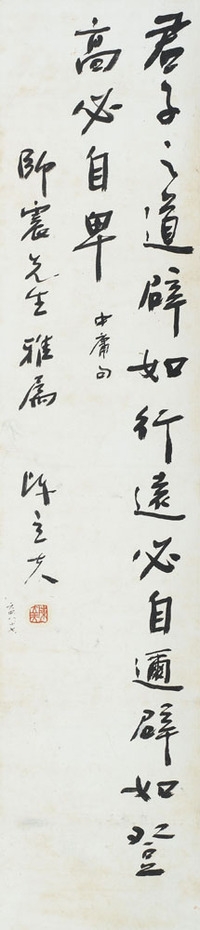 君子之道辟如行遠必自邇辟如登
高必自卑 中庸句
師宸先生雅屬 陳立夫